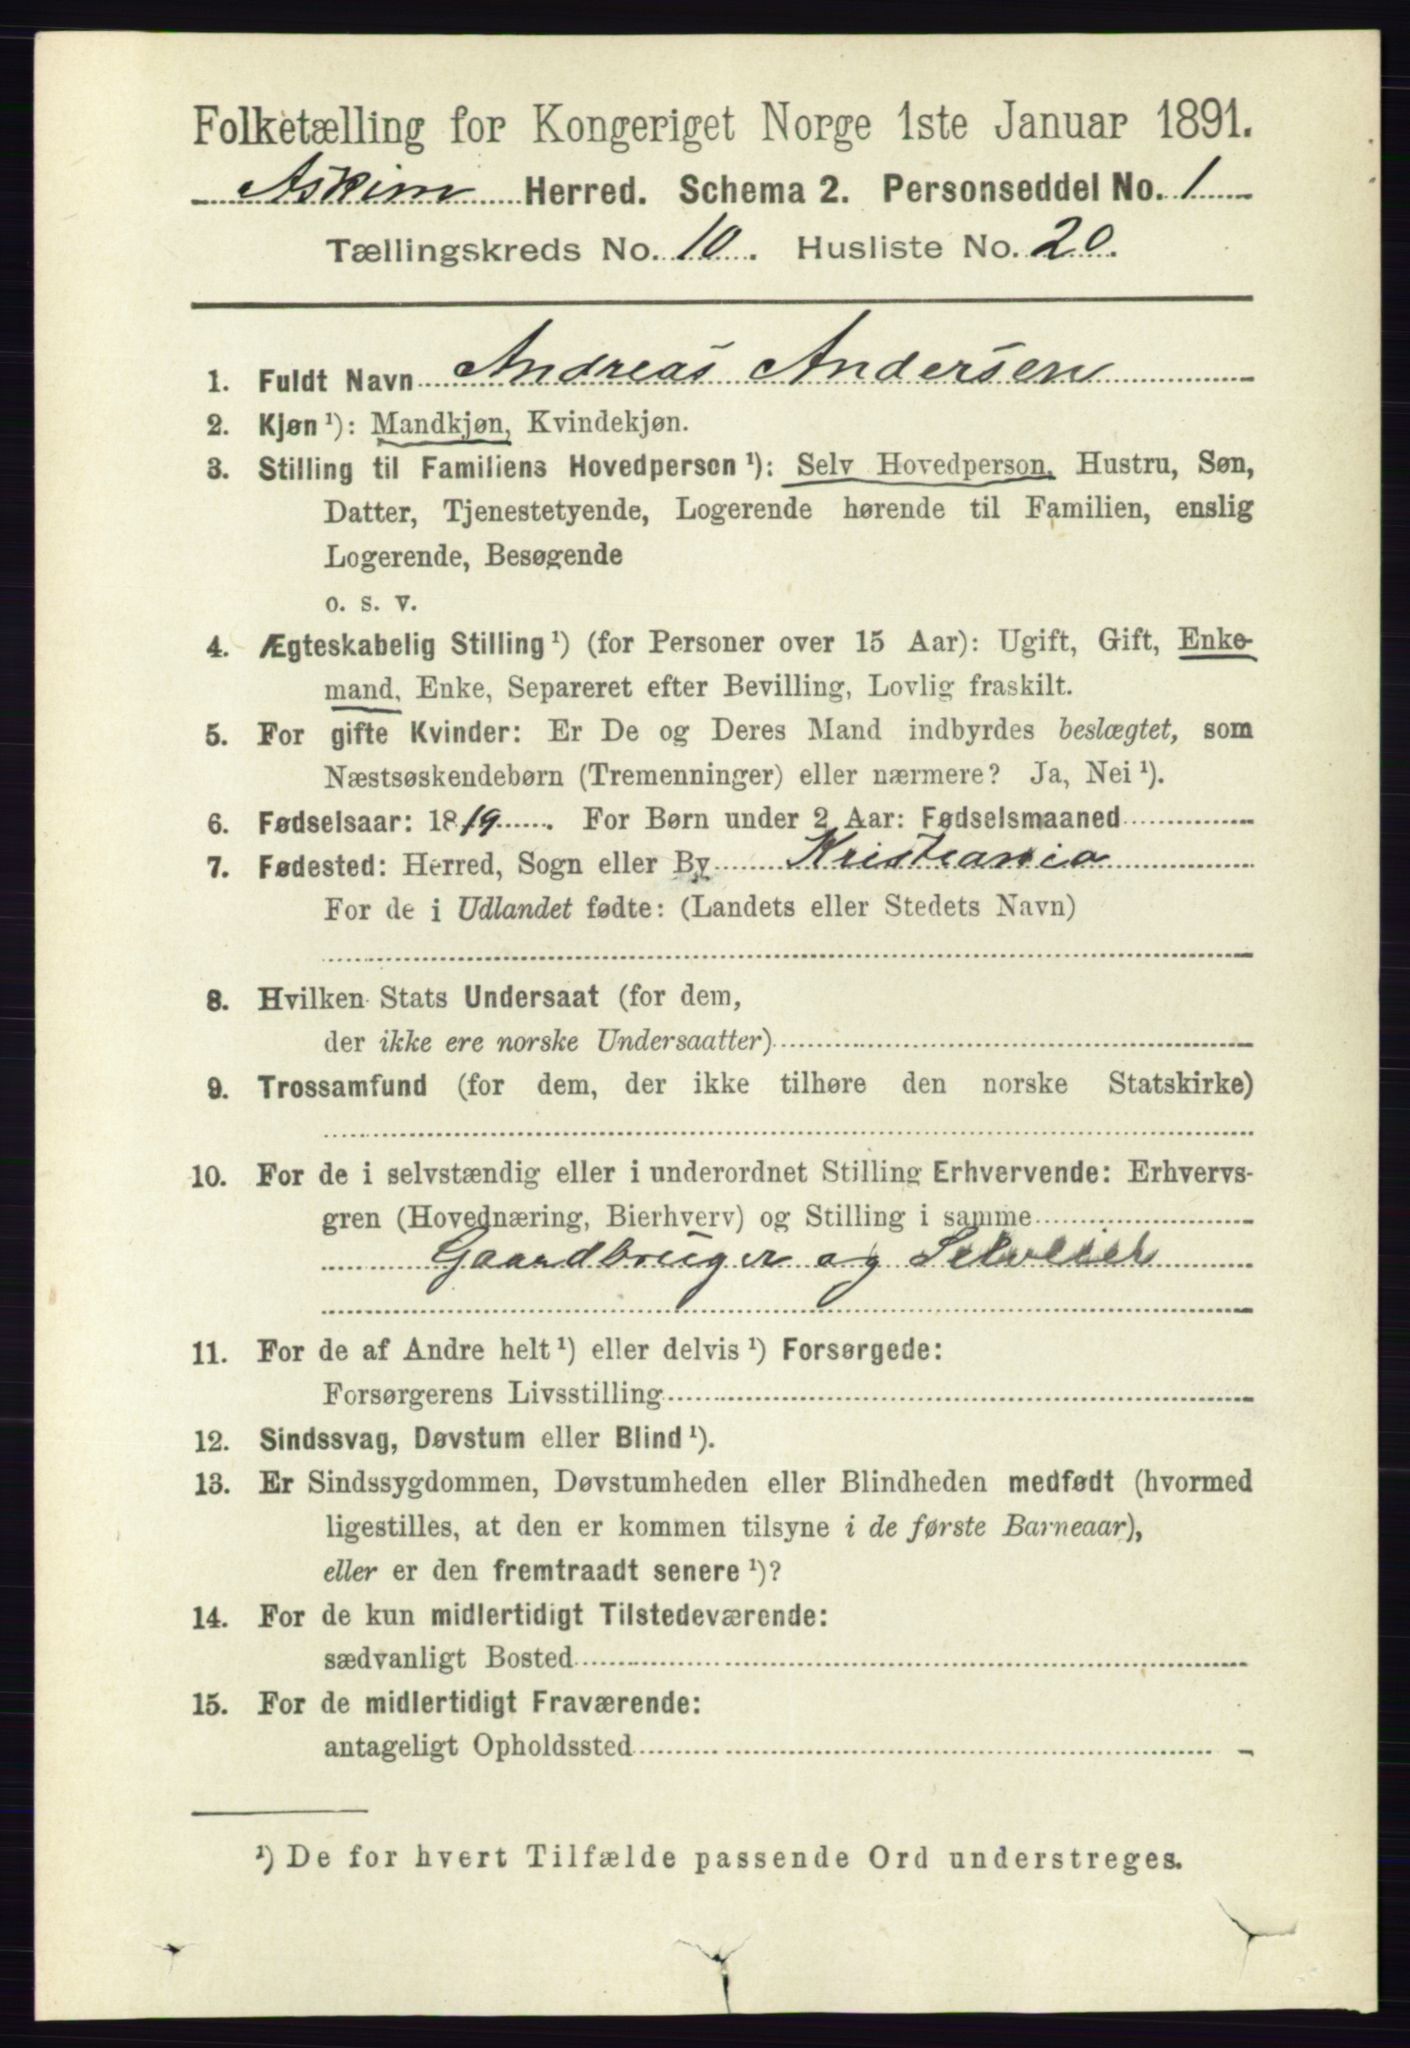 Folketælling for Kongeriget Norge 1ste Januar 1891.
Askim Herred. Schema 2. Personseddel No. 1
Tællingskreds No. 10. Husliste No. 20.
1. Fuldt Navn Andreas Andersen
2. Kjøn ¹): Mandkjøn, Kvindekjøn.
3. Stilling til Familiens Hovedperson ¹): Selv Hovedperson, Hustru, Søn,
Datter, Tjenestetyende, Logerende hørende til Familien, enslig
Logerende, Besøgende
o. s. v.
4. Ægteskabelig Stilling ¹) (for Personer over 15 Aar): Ugift, Gift, Enke-
mand, Enke, Separeret efter Bevilling, Lovlig fraskilt.
5. For gifte Kvinder: Er De og Deres Mand indbyrdes beslægtet, som
Næstsøskendebørn (Tremenninger) eller nærmere? Ja, Nei ¹).
6. Fødselsaar: 1819. For Børn under 2 Aar: Fødselsmaaned
7. Fødested: Herred, Sogn eller By Kristiania
For de i Udlandet fødte: (Landets eller Stedets Navn)
8. Hvilken Stats Undersaat (for dem,
der ikke ere norske Undersaatter)
9. Trossamfund (for dem, der ikke tilhøre den norske Statskirke)
10. For de i selvstændig eller i underordnet Stilling Erhvervende: Erhvervs-
gren (Hovednæring, Bierhverv) og Stilling i samme
Gaardbruger og Selveier
11. For de af Andre helt ¹) eller delvis ¹) Forsørgede:
Forsørgerens Livsstilling
12. Sindssvag, Døvstum eller Blind ¹).
13. Er Sindssygdommen, Døvstumheden eller Blindheden medfødt (hvormed
ligestilles, at den er kommen tilsyne i de første Barneaar),
eller er den fremtraadt senere ¹)?
14. For de kun midlertidigt Tilstedeværende:
sædvanligt Bosted
15. For de midlertidigt Fraværende:
antageligt Opholdssted
¹) De for hvert Tilfælde passende Ord understreges.